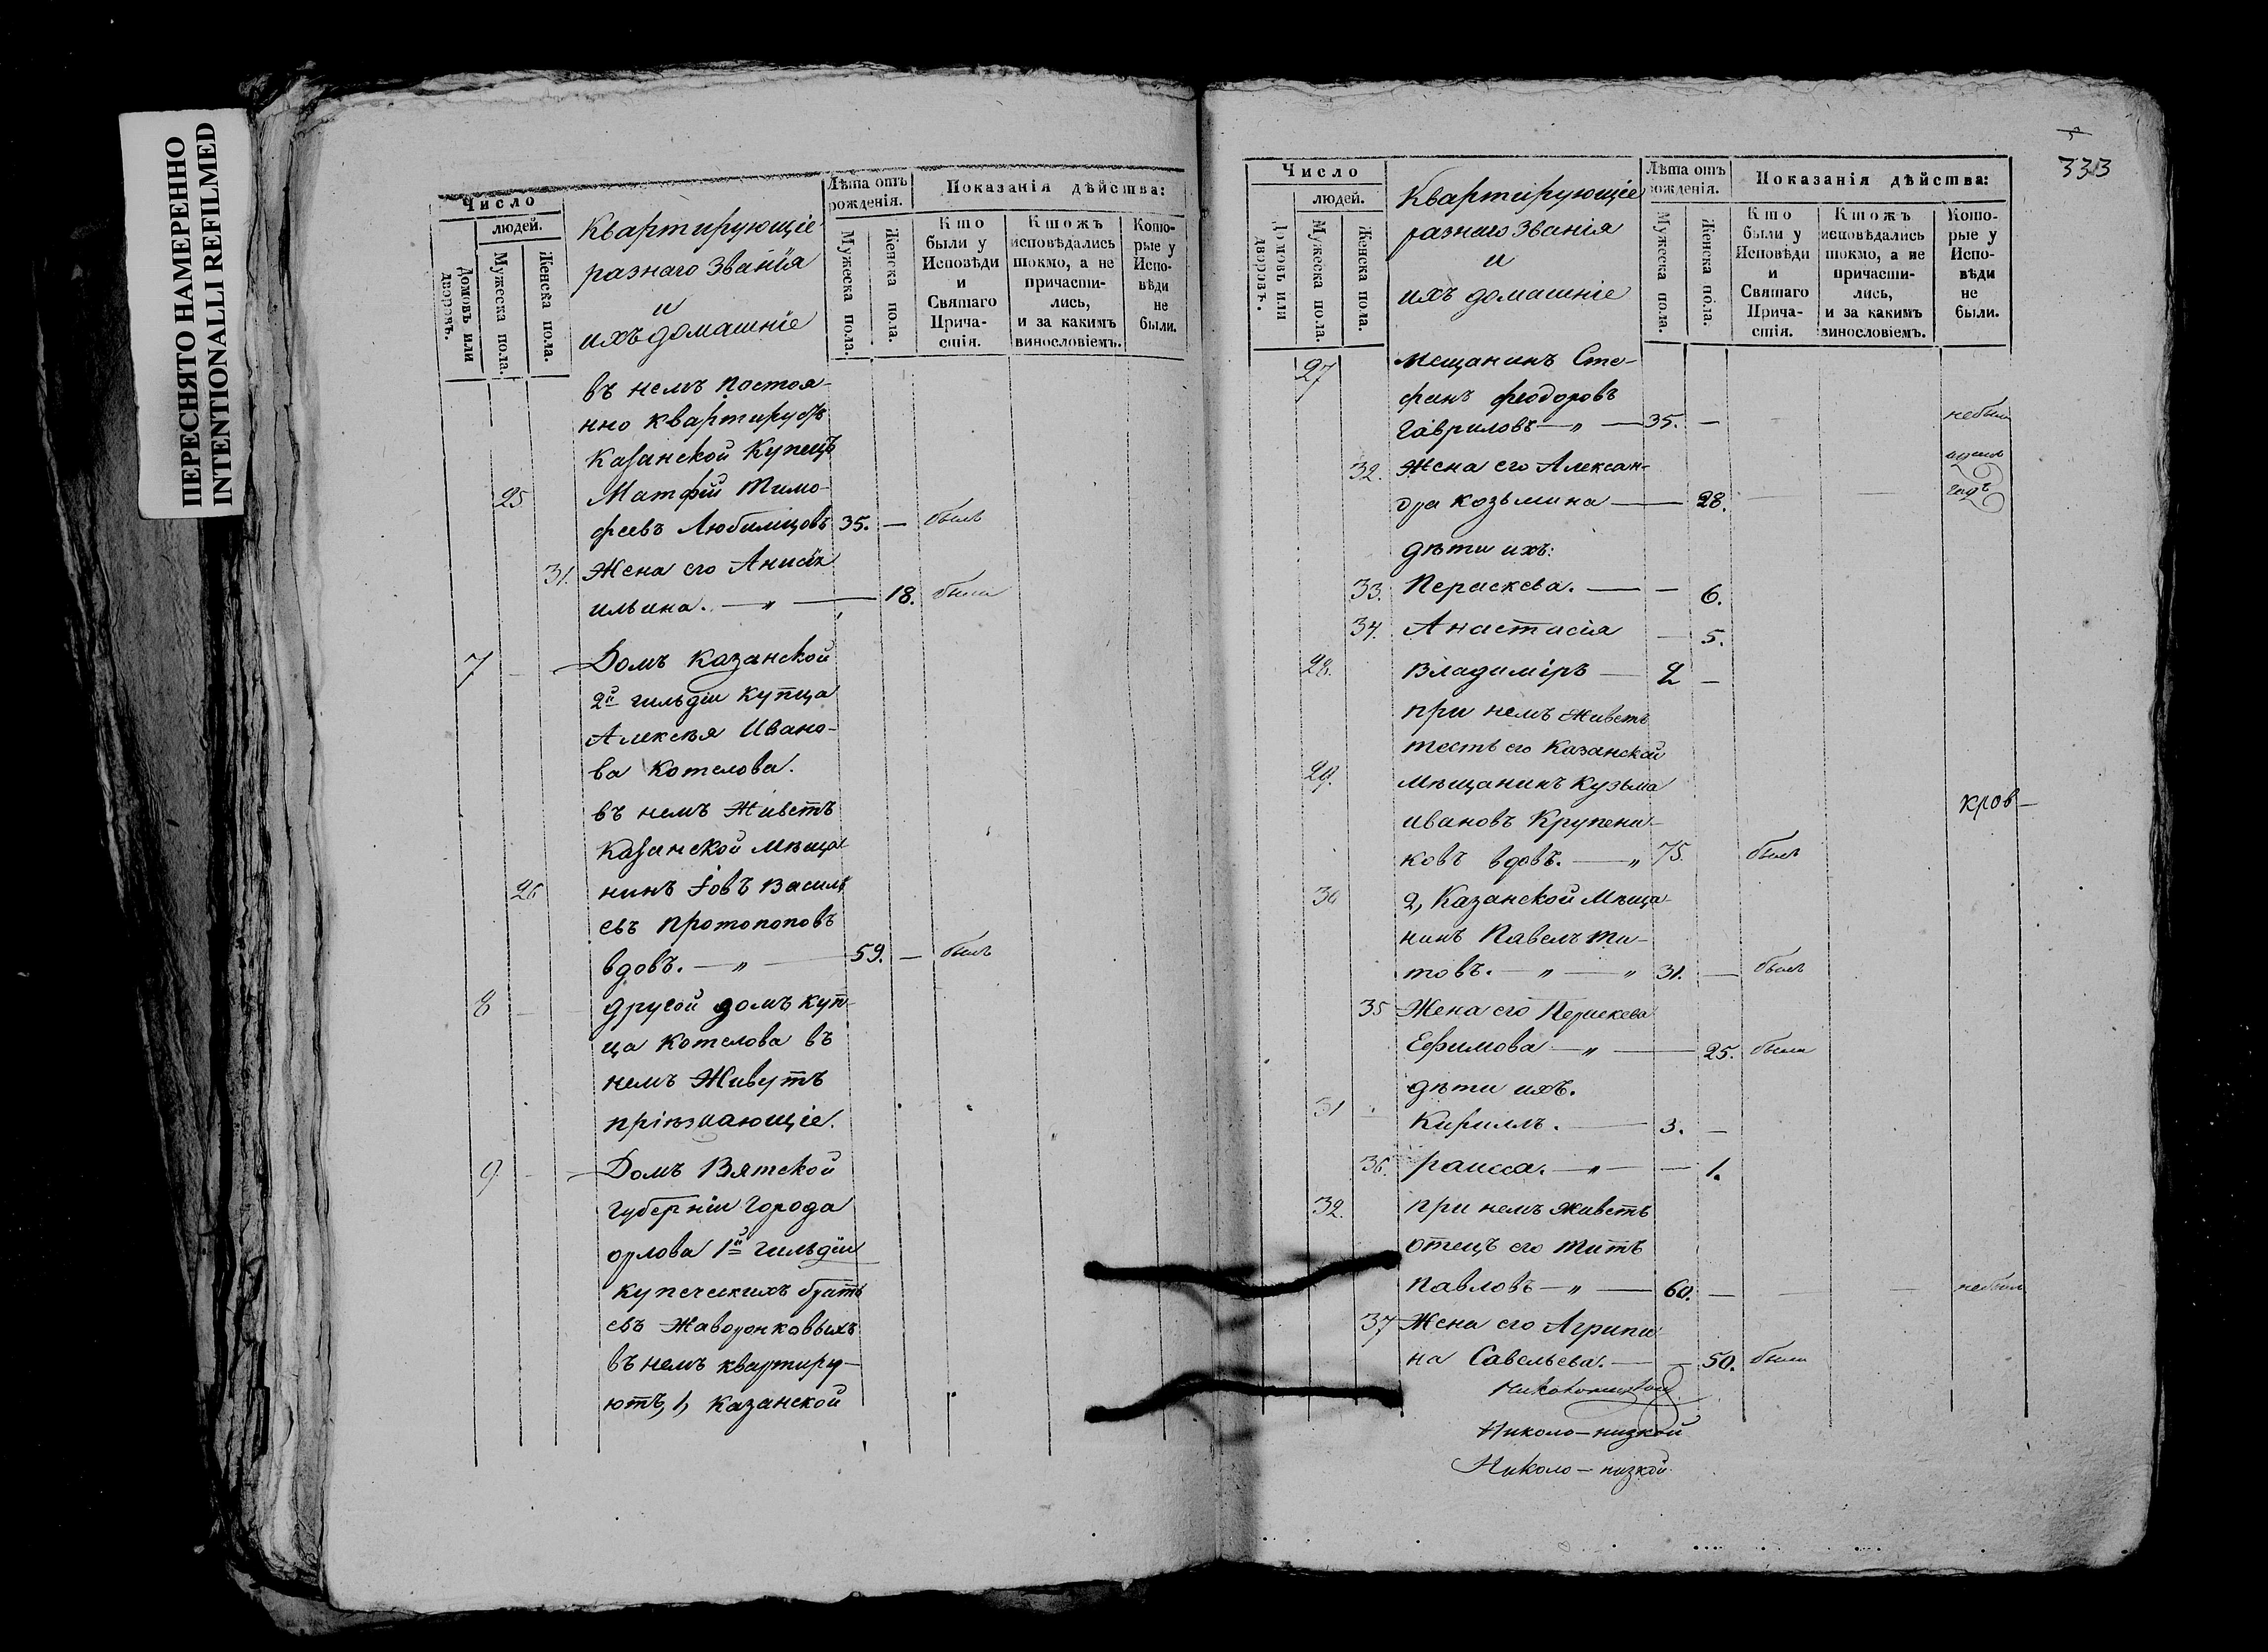 ПЕРЕСНЯТО НАМЕРЕННО
INTENTIONALLI REFILMED
Число
людей.
Домовъ или дворовъ.
Мужеска пола.
Женска пола.
Квартирующіе
разнаго Званія
и
ихъ домашніе
Лѣта отъ рожденія.
Мужеска пола.
Женска пола.
Показанія дѣйства:
Кто были у Исповѣди и Святаго Прича-стія.
Ктожъ исповѣдались токмо, а не причасти-лись, и за какимъ винословіемъ.
Кото-рые у Испо-вѣди не были.
въ немъ постоя-
нно квартируетъ
Казанской Купецъ
25 Матфій Тимо-
феевъ Любимцовъ 35. — былъ
31. Жена его Анисія
ильина. — „ — 18. была
7 — Домъ Казанской
2й гильдіи купца
Алексѣя Ивано-
ва Котелова.
въ немъ Живетъ
Казанской Мѣща
26 нинъ Іовъ Василь
евъ Протопоповъ
вдовъ. — „ — 59. — былъ
8 — другой домъ куп-
ца Котелова въ
немъ Живутъ
пріѣзжающіе.
9 — Домъ Вятской
Губерніи Города
орлова 1й Гильдіи
купеческихъ брать
евъ Жаворонковыхъ
въ немъ квартиру-
ютъ, 1, Казанской
333
Число
людей.
Домовъ или дворовъ.
Мужеска пола.
Женска пола.
Квартирующіе
разнаго Званія
и
ихъ домашніе
Лѣта отъ рожденія.
Мужеска пола.
Женска пола.
Показанія дѣйства:
Кто были у Исповѣди и Святаго Прича-стія.
Ктожъ исповѣдались токмо, а не причасти-лись, и за какимъ винословіемъ.
Кото-рые у Испо-вѣди не были.
27 мещанинъ Сте-
фанъ феодоровъ
Гавриловъ — „ — 35. — небыли
32. Жена его Алексан-
дра козьмина — 28.
дѣти ихъ:
33. Параскева. — — 6.
34. Анастасія — 5.
28. Владиміръ — 2 —
при немъ живетъ
тесть его Казанской
29. мѣщанинъ Кузьма
ивановъ Крупени-
кров-
ковъ вдовъ. — „ 75. былъ
30 2, Казанской Мѣща
нинъ Павелъ Ти-
товъ. — „ — „ 31. — былъ
35 Жена его Параскева
Ефимова — „ — 25. была
дѣти ихъ.
31 Кириллъ. — 3. —
36. раисса. — „ — 1.
32. при немъ живетъ
отецъ его Титъ
Павловъ — „ — 60. — небылъ
37 Жена его Агрипи
на Савельева. — — 50. была
Николо-низкой
Николо-низкой